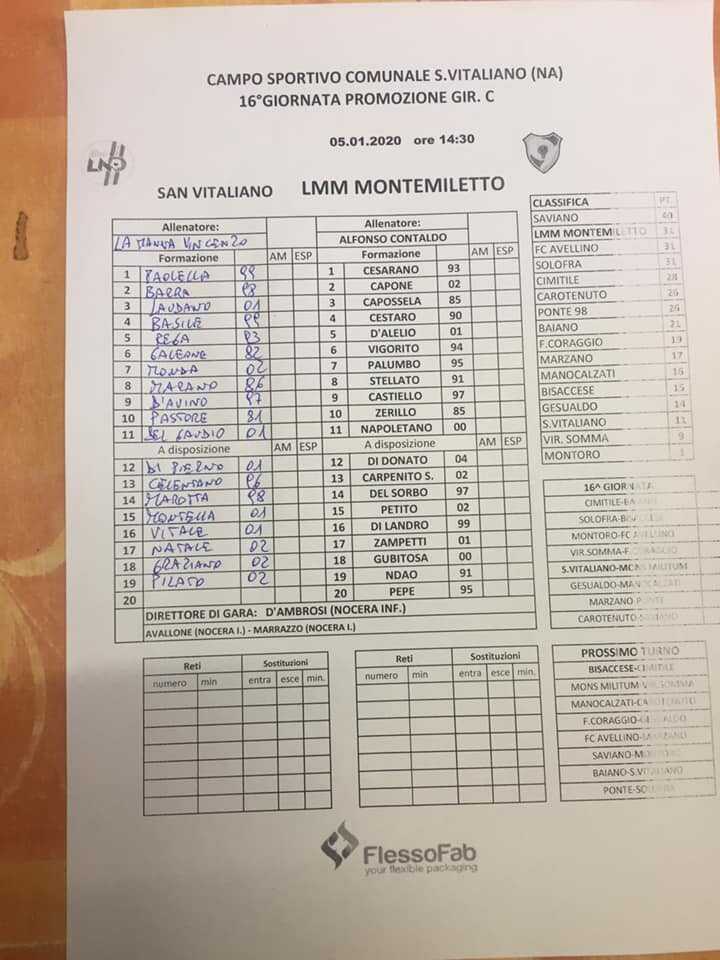 CAMPO SPORTIVO COMUNALE S.VITALIANO (NA)
16°GIORNATA PROMOZIONE GIR. C
05.01.2020 ore 14:30
SAN VITALIANO LMM MONTEMILETTO
Allenatore:
LA MANNA VINCENZO
Formazione AM ESP
1 PAOLELLA 99
2 BARRA 98
3 LAUDANO 01
4 BASILE 99
5 REGA 93
6 GALEONE 82
7 MONDA 02
8 MARANO 86
9 D'AVINO 97
10 PASTORE 81
11 DEL GAUDIO 01
A disposizione AM ESP
12 DI PIERNO 01
13 CELENTANO 96
14 MAROTTA 98
15 MONTELLA 01
16 VITALE 01
17 NATALE 02
18 GRAZIANO 02
19 PILATO 02
20
Allenatore:
ALFONSO CONTALDO
Formazione AM ESP
1 CESARANO 93
2 CAPONE 02
3 CAPOSSELA 85
4 CESTARO 90
5 D'ALELIO 01
6 VIGORITO 94
7 PALUMBO 95
8 STELLATO 91
9 CASTIELLO 97
10 ZERILLO 85
11 NAPOLETANO 00
A disposizione AM ESP
12 DI DONATO 04
13 CARPENITO S. 02
14 DEL SORBO 97
15 PETITO 02
16 DI LANDRO 99
17 ZAMPETTI 01
18 GUBITOSA 00
19 NDAO 91
20 PEPE 95
DIRETTORE DI GARA: D'AMBROSI (NOCERA INF.)
AVALLONE (NOCERA I.) - MARRAZZO (NOCERA I.)
CLASSIFICA PT.
SAVIANO 40
LMM MONTEMILETTO 31
FC AVELLINO 31
SOLOFRA 31
CIMITILE 28
CAROTENUTO 26
PONTE 98 26
BAIANO 21
F.CORAGGIO 19
MARZANO 17
MANOCALZATI 16
BISACCESE 15
GESUALDO 14
S.VITALIANO 11
VIR. SOMMA 9
MONTORO 1
16^ GIORNATA
CIMITILE-BAIANO
SOLOFRA-BISACCESE
MONTORO-FC AVELLINO
VIR.SOMMA-F.CORAGGIO
S.VITALIANO-MONS MILITUM
GESUALDO-MANOCALZATI
MARZANO-PONTE
CAROTENUTO-SAVIANO
PROSSIMO TURNO
BISACCESE-CIMITILE
MONS MILITUM-VIR.SOMMA
MANOCALZATI-CAROTENUTO
F.CORAGGIO-GESUALDO
FC AVELLINO-MARZANO
SAVIANO-MONTORO
BAIANO-S.VITALIANO
PONTE-SOLOFRA
Reti Sostituzioni
numero min entra esce min.
Reti Sostituzioni
numero min entra esce min.
FlessoFab
your flexible packaging